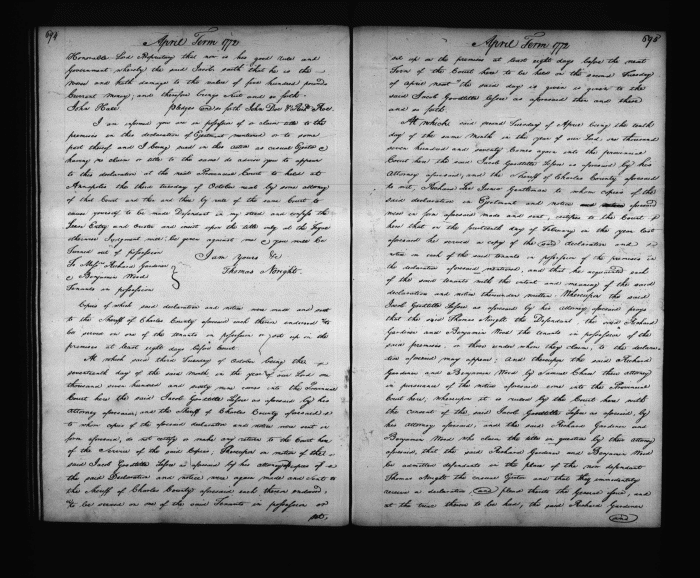 694
April Term 1772
Honourable Lord Proprietary that now is his good rules and
Government whereby the said Jacob saith that he is the
worse and hath damage to the value of five hundred pounds
Current money; and therefore brings suit and so forth
John Hall Pledges and so forth John Doe & Richd Roe
I am informed you are in possession of a claim title to the
premises in this declaration of Ejectment mentioned or to some
part thereof and I being sued in this action as casual Ejector &
having no claim or title to the same do advise you to appear
to this declaration at the next Provincial Court to be held at
Annapolis the third tuesday of October next by some attorney
of that Court and then and there by rule of the same Court to
cause yourself to be made Defendant in my stead and confess the
Lease Entry and Ouster and insist upon the title only at the Tryal
otherwise Judgment will be given against me & you will be
Turned out of possession
I am Yours &c
To Messrs Richard Gardiner
Thomas Nought
& Benjamin Wood
Tenants in possession
Copies of which said declaration and notice were made and sent
to the Sheriff of Charles County aforesaid each thereon endorsed "to
be served on one of the tenants in possession or set up on the
premises at least eight days before Court"
At which said third Tuesday of October being the
seventeenth day of the said month in the year of our Lord one
thousand seven hundred and sixty nine comes into the Provincial
Court here the said Jacob Goodtitle Lessee as aforesaid by his
Attorney aforesaid; and the Sheriff of Charles County aforesaid
to whom copies of the aforesaid declaration and notice were sent in
form aforesaid, do not certify or make any return to the Court here
of the service of the said Copies; Thereupon on motion of the
said Jacob Goodtitle Lessee as aforesaid by his attorney Copies of
the said Declaration and notice were again made and sent to
the Sheriff of Charles County aforesaid each thereon endorsed,
"to be served on one of the said Tenants in possession or
set,
695
April Term 1772
set up on the premises at least eight days before the next
Term of the Court here to be held on the second Tuesday
of April next" the said day is given is given to the
said Jacob Goodtitle Lessee as aforesaid then and there
and so forth
At which said second Tuesday of April being the tenth
day of the same Month in the year of our Lord one thousand
seven hundred and seventy Comes again into the provincial
Court here the said Jacob Goodtitle Lessee as aforesaid by his
Attorney aforesaid; and the Sheriff of Charles County aforesaid
to wit, Richard Lee Junior Gentleman to whom copies of the
said declaration in Ejectment and notice aforesaid
were in form aforesaid made and sent, certifies to the Court
here that on the fourteenth day of February in the year last
aforesaid he served a copy of the said declaration and
notice on each of the said tenants in possession of the premises in
the declaration aforesaid mentioned, and that he acquainted each
of the said tenants with the intent and meaning of the said
declaration and notice thereunder written. Whereupon the said
Jacob Goodtitle Lessee as aforesaid by his attorney aforesaid prays
that the said Thomas Nought the Defendant, the said Richard
Gardiner and Benjamin Wood the tenants in possession of the
said premises, or those under whom they claim, to the declara-
tion aforesaid may appear; And thereupon the said Richard
Gardiner and Benjamin Wood by Samuel Chase their attorney
in pursuance of the notice aforesaid come into the Provincial
Court here, whereupon it is ruled by the Court here with
the consent of the said Jacob Goodtitle Lessee as aforesaid, by
his attorney aforesaid, and the said Richard Gardiner and
Benjamin Wood who claim the title in question by their attorney
aforesaid, that the said Richard Gardiner and Benjamin Wood
be admitted defendants in the place of the now defendant
Thomas Nought the casual Ejector and that they immediately
receive a declaration and plead thereto the General Issue, and
at the trial thereon to be had, the said Richard Gardiner
and